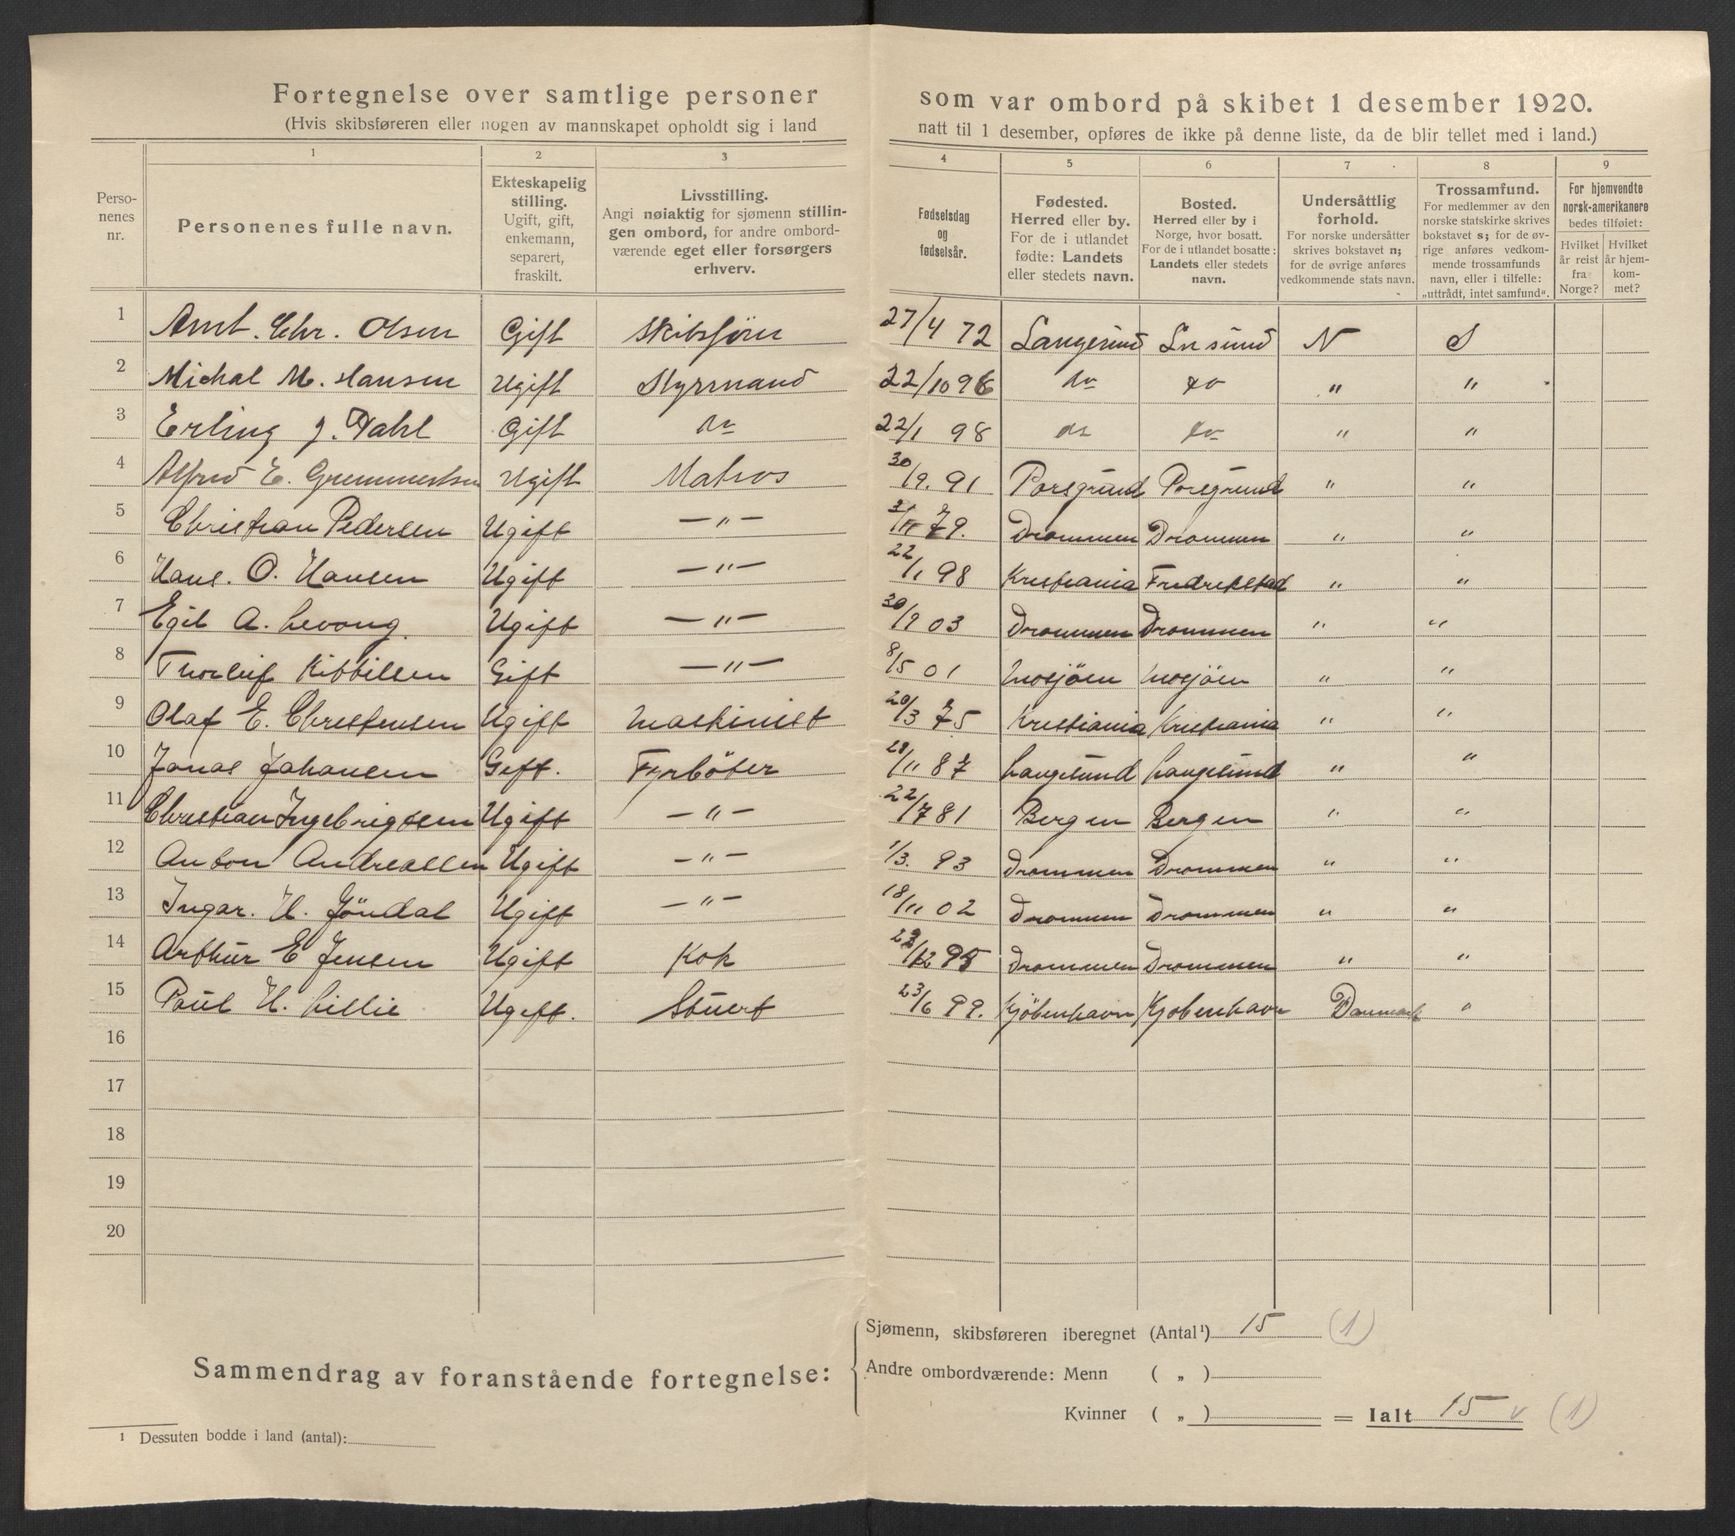 Fortegnelse over samtlige personer som var ombord på skibet 1 desember 1920.
(Hvis skibsføreren eller nogen av mannskapet opholdt sig i land natt til 1 desember, opføres de ikke på denne liste, da de blir tellet med i land.)
Personenes nr.
1 Personenes fulle navn.
2 Ekteskapelig stilling. Ugift, gift, enkemann, separert, fraskilt.
3 Livsstilling. Angi nøiaktig for sjømenn stillingen ombord, for andre ombordværende eget eller forsørgers erhverv.
4 Fødselsdag og fødselsår.
5 Fødested. Herred eller by. For de i utlandet fødte: Landets eller stedets navn.
6 Bosted. Herred eller by i Norge, hvor bosatt. For de i utlandet bosatte: Landets eller stedets navn.
7 Undersåttlig forhold. For norske undersåtter skrives bokstavet n; for de øvrige anføres vedkommende stats navn.
8 Trossamfund. For medlemmer av den norske statskirke skrives bokstavet s; for de øvrige anføres vedkommende trossamfunds navn, eller i tilfelle: „uttrådt, intet samfund“.
9 For hjemvendte norsk-amerikanere bedes tilføiet: Hvilket år reist fra Norge? Hvilket år hjemkommet?
1 Arnt. Chr. Olsen Gift Skibsförer 27/4 72 Langesund L-sund N S
2 Michal M. Hansen Ugift Styrmand 22/10 96 do do " "
3 Erling J. Dahl Gift do 22/1 98 do do " "
4 Alfred E. Ugift Matros 30/9. 91 Porsgrund Porsgrund " "
5 Christian Pedersen Ugift —"— 79. Drammen Drammen " "
6 Hans. O. Hansen Ugift —"— 22/1 98 Kristiania Fredrikstad " "
7 Egil A. Levang. Ugift —"— 30/9 03 Drammen Drammen " "
8 Thorleif Kittilsen Gift —"— 8/5 01 Mosjöen Mosjöen " "
9 Olaf E. Christensen Ugift Maskinist 20/3 75 Kristiania Kristiania " "
10 Jonas Johansen Gift. Fyrböter 28/11 87 Langesund Langesund " "
11 Christian Ingebrigtsen Ugift —"— 22/7 81 Bergen Bergen " "
12 Anton Andreassen Ugift —"— 1/3. 93 Drammen Drammen " "
13 Ingar. H. Jöndal Ugift —"— 18/11 02 Drammen Drammen " "
14 Arthur E Jensen Ugift Kok /12 95 Drammen Drammen " "
15 Paul H. Lillie Ugift. Stuert 23/6 99. Kjöbenhavn Kjøbenhavn Danmark "
16
17
18
19
20
Sammendrag av foranstående fortegnelse:
Sjømenn, skibsføreren iberegnet (Antal¹) 15 (1)
Andre ombordværende: Menn ( „ )
Kvinner ( „ ) = Ialt 15 v (1)
¹ Dessuten bodde i land (antal):